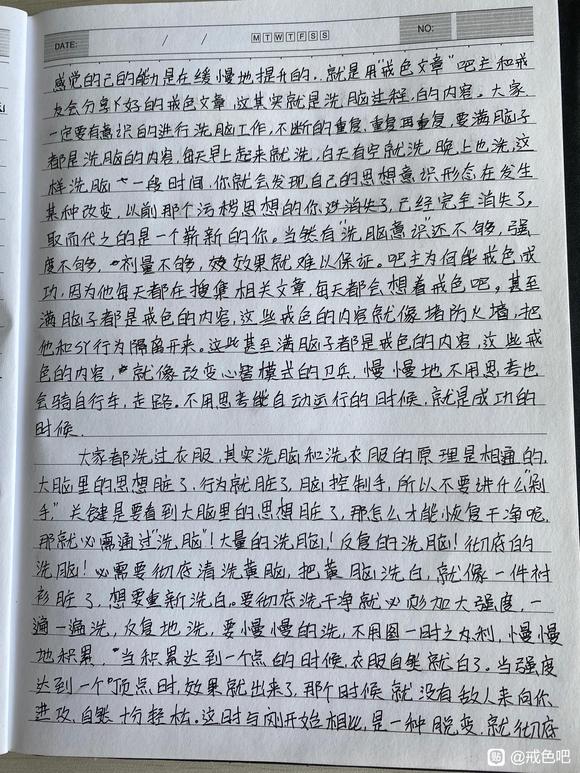 DATE: / / M T W T F S S NO:
感觉的己的能力是在缓慢地提升的,就是用“戒色文章”吧主和戒
友会分享下好的戒色文章,这其实就是洗脑过程,的内容。大家
一定要有意识的进行洗脑工作,不断的重复,重复再重复,要满脑子
都是洗脑的内容,每天早上起来就洗,白天有空就洗,晚上也洗,这
样洗脑一段时间,你就会发现自己的思想意识形态在发生
某种改变,以前那个污秽思想的你消失了,已经完全消失了,
取而代之的是一个崭新的你。当然有“洗脑意识”还不够,强
度不够,剂量不够,效果就难以保证。吧主为何能戒色成
功,因为他每天都在搜集相关文章,每天都会想着戒色吧。甚至
满脑子都是戒色的内容,这些戒色的内容就像堵防火墙,把
他和SY行为隔离开来。这些甚至满脑子都是戒色的内容,这些戒
色的内容,就像改变心智模式的卫兵,慢慢地不用思考也
会骑自行车,走路。不用思考能自动运行的时候,就是成功的
时候.
大家都洗过衣服,其实洗脑和洗衣服的原理是相通的,
大脑里的思想脏了,行为就脏了,脑控制手,所以不要讲什么“剁
手”关键是要看到大脑里的思想脏了,那怎么才能恢复干净呢,
那就必需通过“洗脑”!大量的洗脑!反复的洗脑!彻底的
洗脑!必需要彻底清洗黄脑,把黄脑洗白,就像一件衬
衫脏了,想要重新洗白。要彻底洗干净就必须加大强度,一
遍一遍洗,反复地洗,要慢慢的洗,不用图一时之利,慢慢
地积累,当积累达到一个点的时候,衣服自然就白了。当强度
达到一个顶点时,效果就出来了,那个时候就没有敌人来向你
进攻,自然十分轻松。这时与刚开始相比,是一种脱变,就彻底
贴 @戒色吧